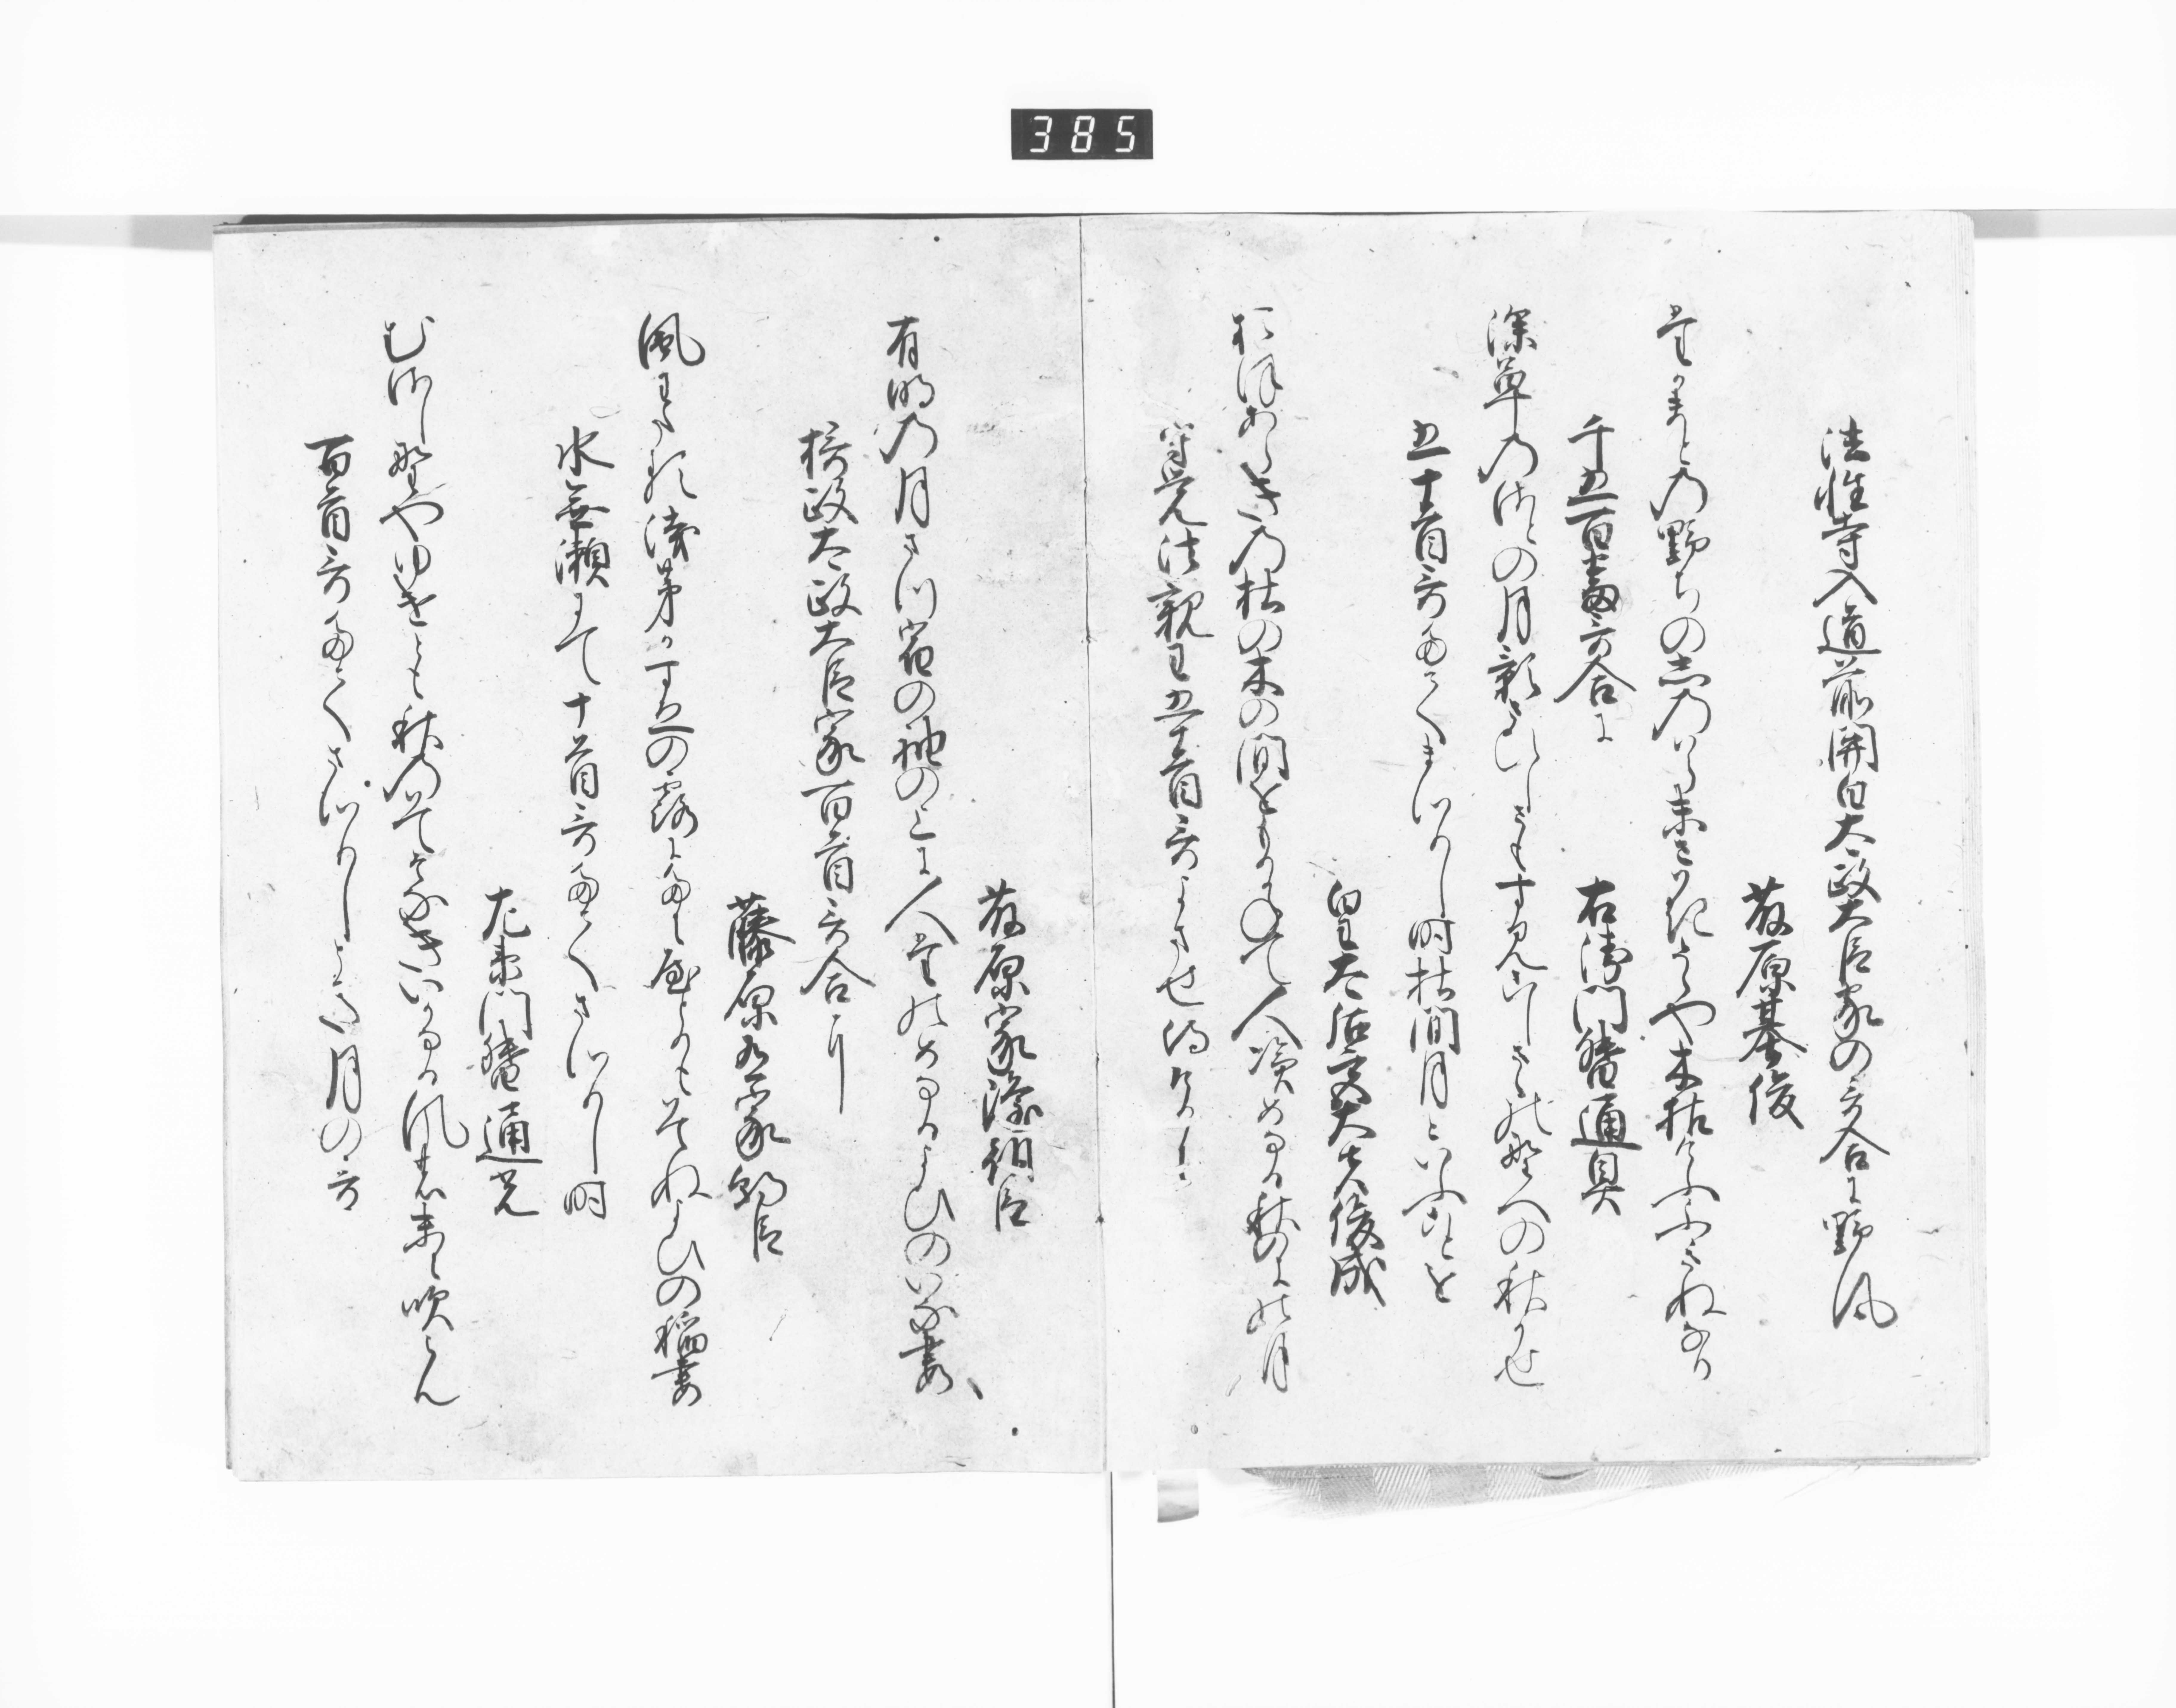 385
法性寺入道前関白太政大臣家の哥合に野風
藤原基俊
高まとの野ちの志のハら末さはきそゝや木枯けふふきぬなり
千五百番哥合に
右衛門督通具
深草のさとの月影さひしさもすみこしまゝの野への秋かせ
五十首哥たてまつりし時杜間月といふことを
皇太后宮大夫俊成
おほあらきの杜の木の間をもりかねて人頼めなる秋のよの月
守覚法親王五十首哥よませ侍けるに
藤原家隆朝臣
有明の月まつ宿の袖のうへに人たのめなるよひのいな妻
摂政太政大臣家百首哥合に
藤原有家朝臣
風わたる浅茅かすゑの露にたにやとりもはてぬよひの稲妻
水無瀬にて十首哥たてまつりし時
左衛門督通光
むさし野やゆけとも秋のはてそなきいかなる風の末に吹らん
百首哥たてまつりし時月の哥